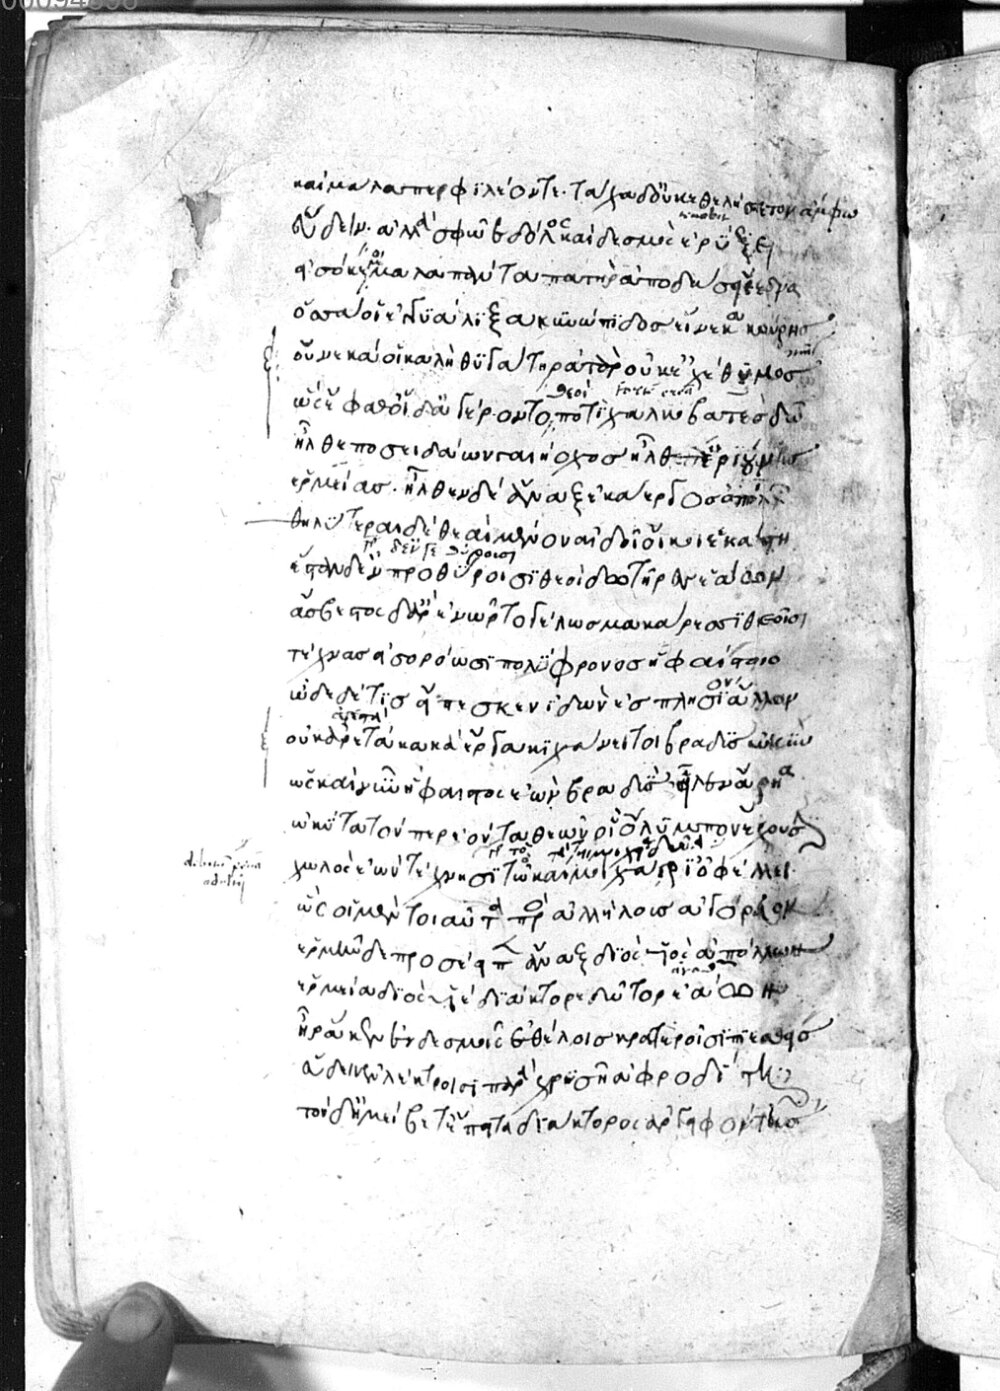 καὶ μάλα περ φιλέοντε· τάχα δ' οὐκ ἐθελήσετον ἄμφω
εὕδειν· ἀλλά σφωε δόλος καὶ δεσμὸς ἐρύξει
εἰσόκε μάλα πάντα πατὴρ ἀποδῷσιν ἔεδνα
ὅσσα οἱ ἐγγυάλιξα κυνώπιδος εἵνεκα κούρης
οὕνεκά οἱ καλὴ θυγάτηρ ἀτὰρ οὐκ ἐχέθυμος
ὣς ἔφαθ' οἱ δ' ἀγέροντο θεοὶ ποτὶ χαλκοβατὲς δῶ
ἦλθε ποσειδάων γαιήοχος ἦλθ' ἐριούνης
ἑρμείας· ἦλθεν δὲ ἄναξ ἑκάεργος ἀπόλλων
θηλύτεραι δὲ θεαὶ μένον αἰδοῖ οἴκοι ἑκάστη
ἔσταν δ' ἐν προθύροισι θεοὶ δωτῆρες ἐάων
ἄσβεστος δ' ἄρ' ἐνῶρτο γέλως μακάρεσσι θεοῖσι
τέχνας εἰσορόωσι πολύφρονος ἡφαίστοιο
ὧδε δέ τις εἴπεσκεν ἰδὼν ἐς πλησίον ἄλλον
οὐκ ἀρετᾷ κακὰ ἔργα κιχάνει τοι βραδὺς ὠκύν
ὡς καὶ νῦν ἥφαιστος ἐὼν βραδὺς εἷλεν ἄρηα
ὠκύτατόν περ ἐόντα θεῶν οἳ ὄλυμπον ἔχουσι
χωλὸς ἐὼν τέχνῃσι τὸ καὶ μοιχάγρι' ὀφέλλει
ὣς οἱ μὲν τοιαῦτα πρὸς ἀλλήλους ἀγόρευον
ἑρμῆν δὲ προσέειπεν ἄναξ διὸς υἱὸς ἀπόλλων
ἑρμεία διὸς υἱὲ διάκτορε δῶτορ ἐάων
ἦ ῥά κεν ἐν δεσμοῖς ἐθέλοις κρατεροῖσι πιεσθεὶς
εὕδειν ἐν λέκτροισι παρὰ χρυσῇ ἀφροδίτῃ
τὸν δ' ἠμείβετ' ἔπειτα διάκτορος ἀργειφόντης